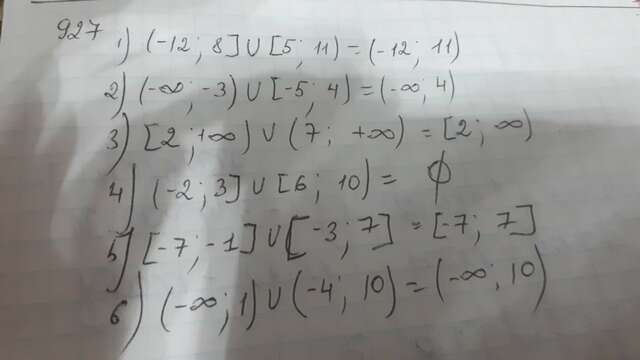 927
1) (-12; 8] ∪ [5; 11) = (-12; 11)
2) (-∞; -3) ∪ [-5; 4) = (-∞; 4)
3) [2; +∞) ∪ (7; +∞) = [2; ∞)
4) (-2; 3] ∪ [6; 10) = ∅
5) [-7; -1] ∪ [-3; 7] = [-7; 7]
6) (-∞; 1) ∪ (-4; 10) = (-∞; 10)